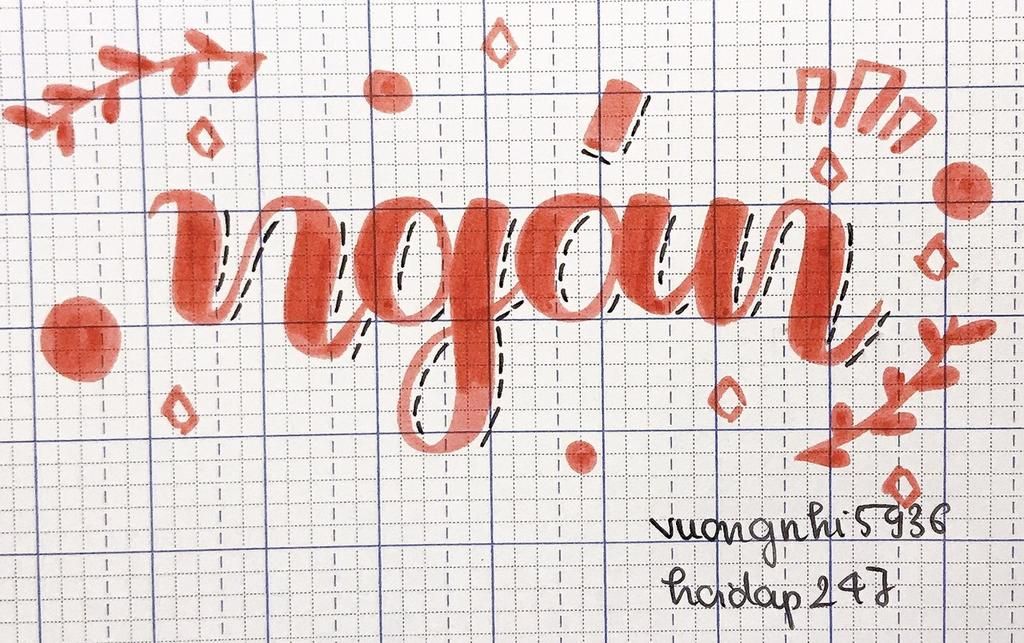 ngán
vuongnhi5936
hoidap247